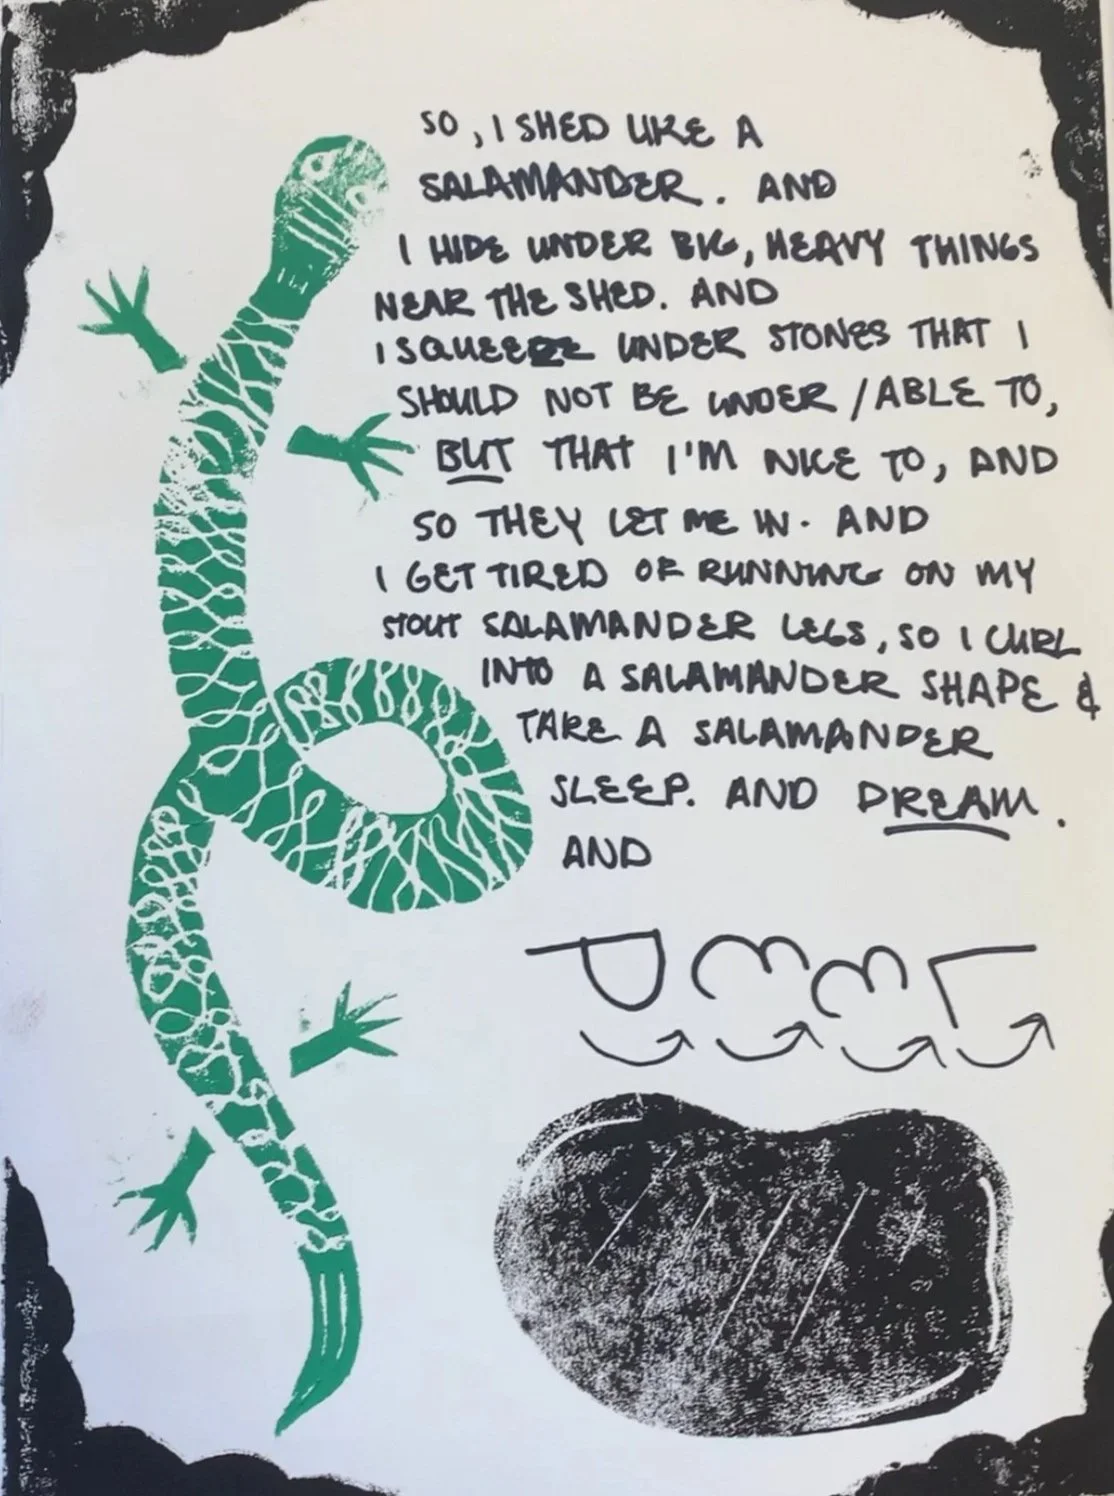 SO, I SHED LIKE A
SALAMANDER. AND
I HIDE UNDER BIG, HEAVY THINGS
NEAR THE SHED. AND
I SQUEEZE UNDER STONES THAT I
SHOULD NOT BE UNDER / ABLE TO,
BUT THAT I'M NICE TO, AND
SO THEY LET ME IN. AND
I GET TIRED OF RUNNING ON MY
STOUT SALAMANDER LEGS, SO I CURL
INTO A SALAMANDER SHAPE &
TAKE A SALAMANDER
SLEEP. AND DREAM.
AND
PEEL